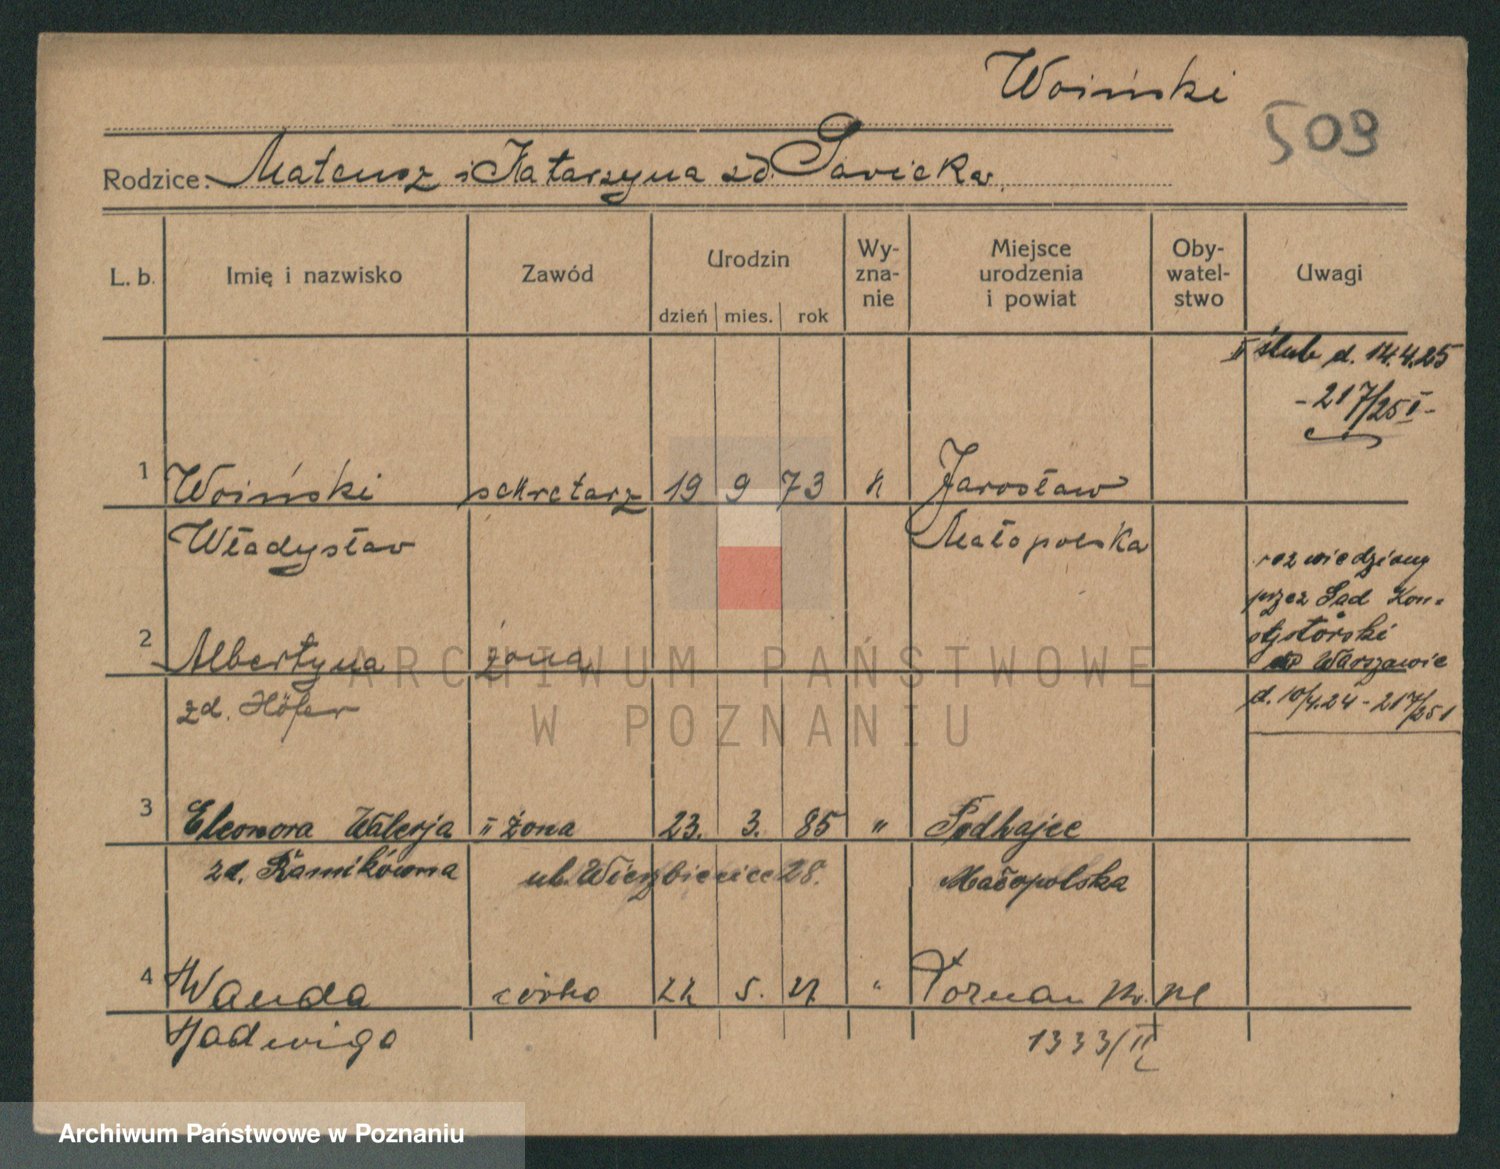 Woiński
509
Rodzice: Mateusz i Katarzyna zd. Savicka
L. b. Imię i nazwisko Zawód Urodzin Wy-zna-nie Miejsce urodzenia i powiat Oby-watel-stwo Uwagi
dzień mies. rok
II ślub d. 14.4.25
- 217/25 I -
1 Woiński sekretarz 19 9 73 k Jarosław
Władysław Małopolska
rozwiedziony
przez Sąd Kon-
systorski
Warszawie
2 Albertyna żona
zd. Höfer
d. 10/4.24 - 217/25 I
3 Eleonora Walerja II żona 23. 3. 85 " Podhajce
zd. ul. Wierzbięcice 28. Małopolska
4 Wanda córka 5. " Poznań
Jadwiga 1333/II
ARCHIWUM PAŃSTWOWE
W POZNANIU
Archiwum Państwowe w Poznaniu